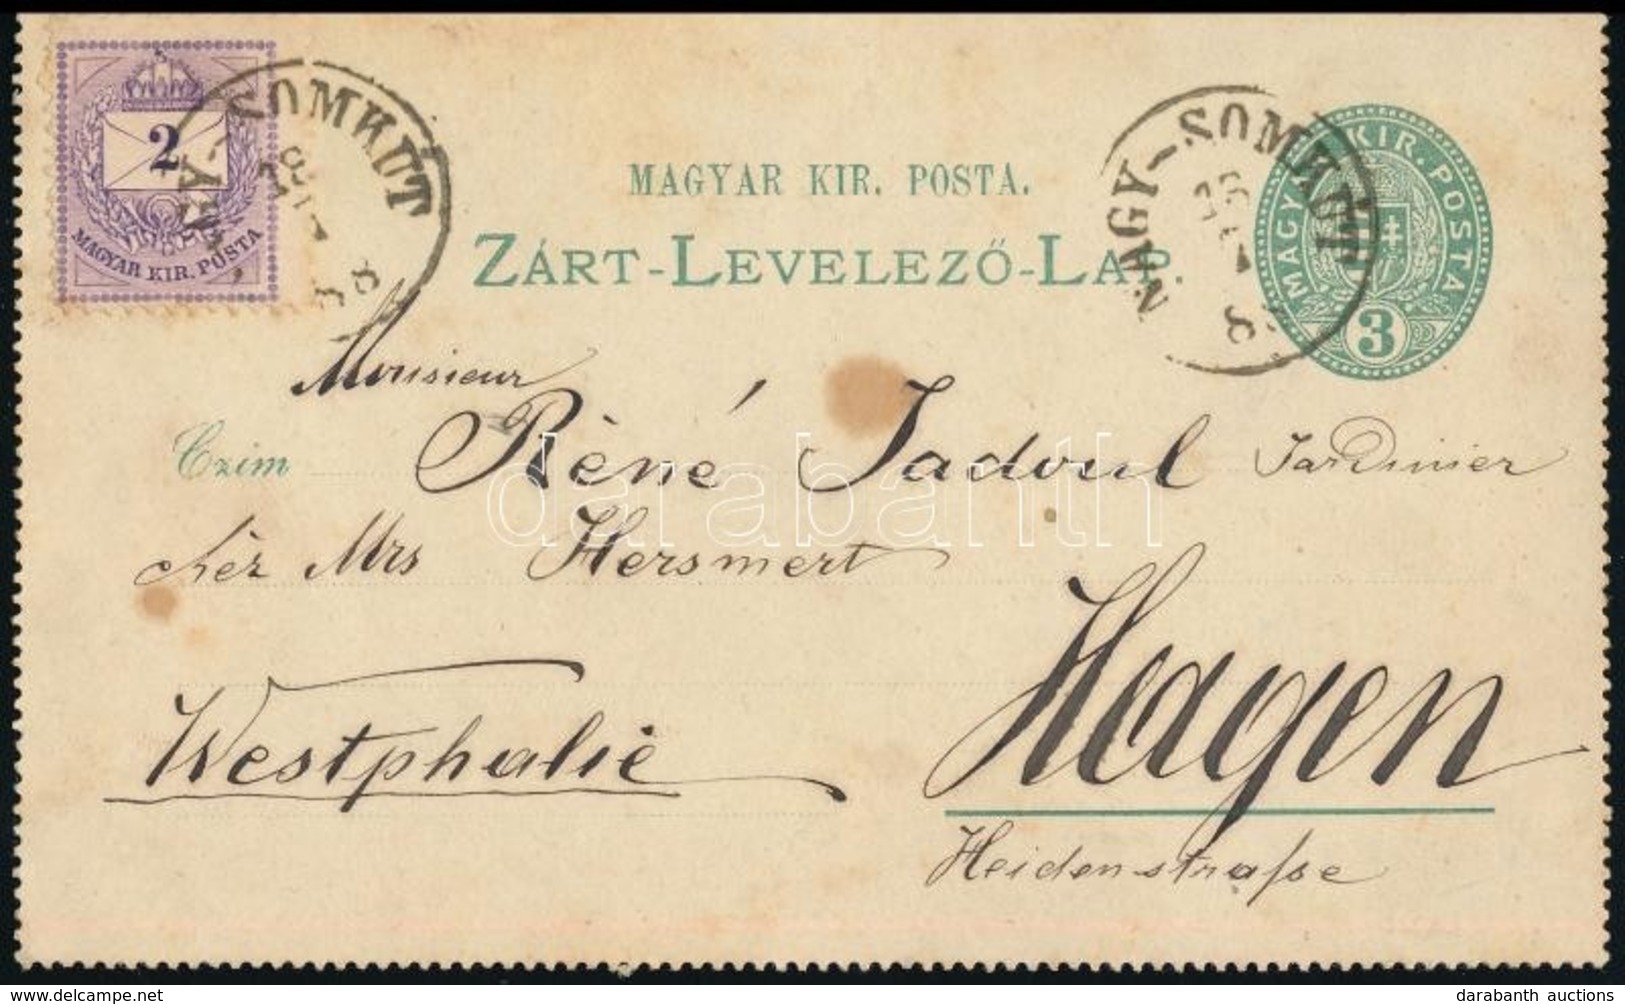 2
MAGYAR KIR. POSTA
NAGY-SOMKUT
MAGYAR KIR. POSTA.
ZÁRT-LEVELEZŐ-LAP.
NAGY-SOMKUT
MAGYAR KIR. POSTA
3
Monsieur
Czim Rèné Jadoul Jardinier
chéz Mrs Hersmert
Hagen
Westphalie
Heidenstraſse
darabanth
darabanth auctions